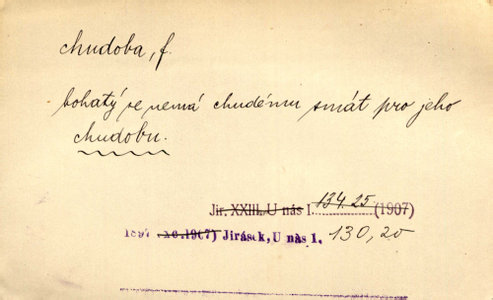 chudoba, f.
bohatý se nemá chudému smát pro jeho
chudobu.
Jir. XXIII. U nás I. 134.25 (1907)
1897 Jirásek, U nás 1. 130,20